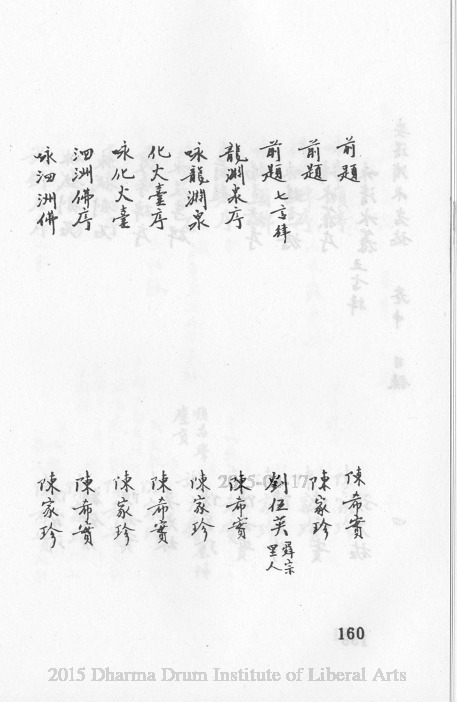 前題 陳希實
前題 陳家珍
前題 七言律 劉伍英 舜宗里人
龍淵泉序 陳希實
咏龍淵泉 陳家珍
化火臺序 陳希實
咏化火臺 陳家珍
泗洲佛序 陳希實
咏泗洲佛 陳家珍
160
2015 Dharma Drum Institute of Liberal Arts